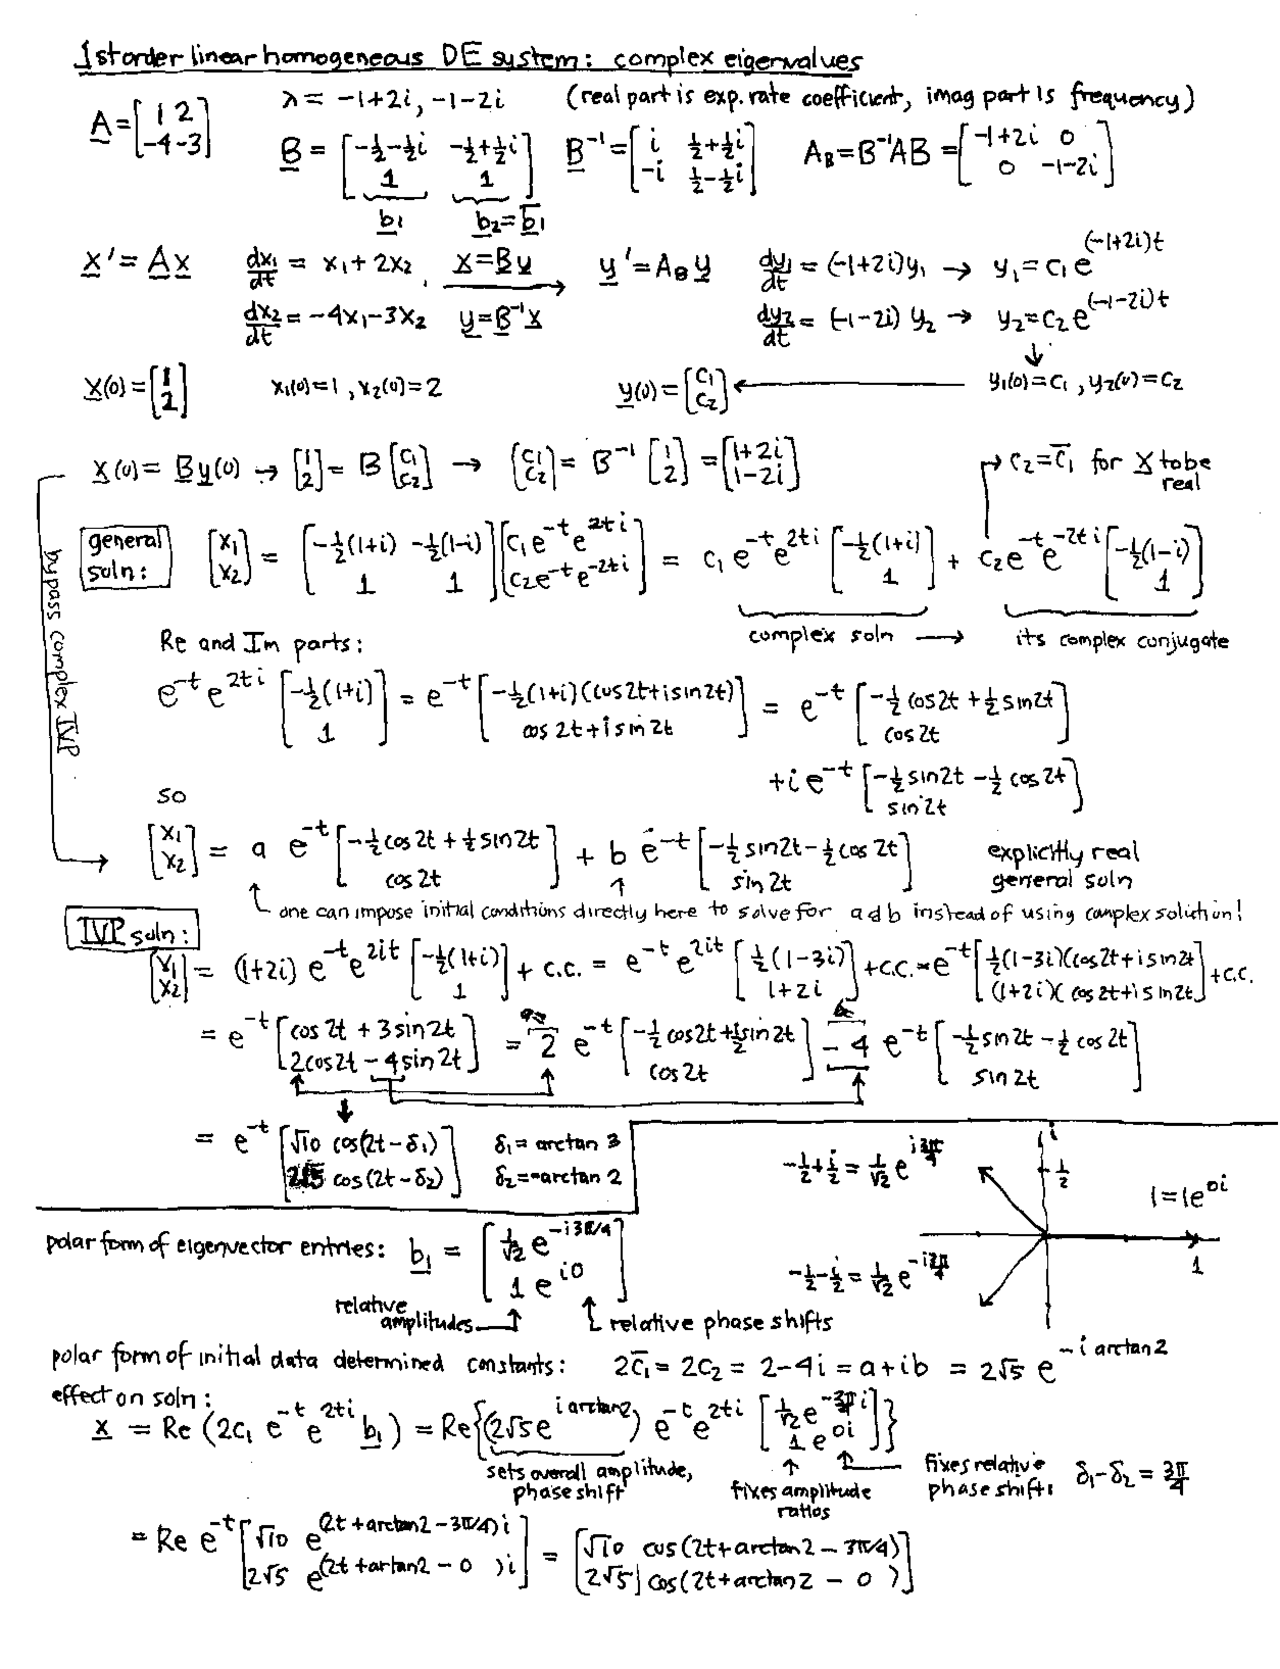 1st order linear homogeneous DE system: complex eigenvalues
A = [1 2; -4 -3]   λ = -1+2i, -1-2i   (real part is exp. rate coefficient, imag part is frequency)
B = [-½-½i  -½+½i; 1  1]   B⁻¹ = [i  ½+½i; -i  ½-½i]   A_B = B⁻¹AB = [-1+2i  0; 0  -1-2i]
b₁   b₂ = b̄₁
x' = A x   dx₁/dt = x₁ + 2x₂,   x = By   y' = A_B y   dy₁/dt = (-1+2i)y₁ → y₁ = c₁e^(-1+2i)t
dx₂/dt = -4x₁ - 3x₂   y = B⁻¹x   dy₂/dt = (-1-2i)y₂ → y₂ = c₂e^(-1-2i)t
↓
x(0) = [1; 2]   x₁(0)=1, x₂(0)=2   y(0) = [c₁; c₂] ← y₁(0)=c₁, y₂(0)=c₂
x(0) = By(0) → [1; 2] = B[c₁; c₂] → [c₁; c₂] = B⁻¹[1; 2] = [1+2i; 1-2i]   → c₂ = c̄₁ for x to be real
bypass complex IVP
general soln:   [x₁; x₂] = [-½(1+i)  -½(1-i); 1  1][c₁e^-t e^2ti; c₂e^-t e^-2ti] = c₁e^-t e^2ti [-½(1+i); 1] + c₂e^-t e^-2ti [-½(1-i); 1]
complex soln → its complex conjugate
Re and Im parts:
e^-t e^2ti [-½(1+i); 1] = e^-t [-½(1+i)(cos2t+isin2t); cos2t+isin2t] = e^-t [-½cos2t+½sin2t; cos2t]
+i e^-t [-½sin2t-½cos2t; sin2t]
so
[x₁; x₂] = a e^-t [-½cos2t+½sin2t; cos2t] + b e^-t [-½sin2t-½cos2t; sin2t]   explicitly real general soln
one can impose initial conditions directly here to solve for a & b instead of using complex solution!
IVP soln:
[x₁; x₂] = (1+2i) e^-t e^2it [-½(1+i); 1] + c.c. = e^-t e^2it [½(1-3i); 1+2i] + c.c. = e^-t [½(1-3i)(cos2t+isin2t); (1+2i)(cos2t+isin2t)] + c.c.
= e^-t [cos2t+3sin2t; 2cos2t-4sin2t] = 2 e^-t [-½cos2t+½sin2t; cos2t] -4 e^-t [-½sin2t-½cos2t; sin2t]
= e^-t [√10 cos(2t-δ₁); 2√5 cos(2t-δ₂)]   δ₁ = arctan 3
δ₂ = -arctan 2
-½+i/2 = 1/√2 e^(i3π/4)   i   ½   1 = 1e^0i
-½-i/2 = 1/√2 e^(-i3π/4)   1
polar form of eigenvector entries: b₁ = [1/√2 e^(-i3π/4); 1 e^i0]
relative amplitudes   relative phase shifts
polar form of initial data determined constants:   2c̄₁ = 2c₂ = 2-4i = a+ib = 2√5 e^(-i arctan2)
effect on soln:
x = Re(2c₁ e^-t e^2ti b₁) = Re{(2√5 e^(i arctan2)) e^-t e^2ti [1/√2 e^(-3π/4 i); 1 e^0i]}
sets overall amplitude, phase shift   fixes amplitude ratios   fixes relative phase shifts   δ₁-δ₂ = 3π/4
= Re e^-t [√10 e^(2t+arctan2-3π/4)i; 2√5 e^(2t+artan2-0)i] = [√10 cos(2t+arctan2-3π/4); 2√5 cos(2t+arctan2-0)]